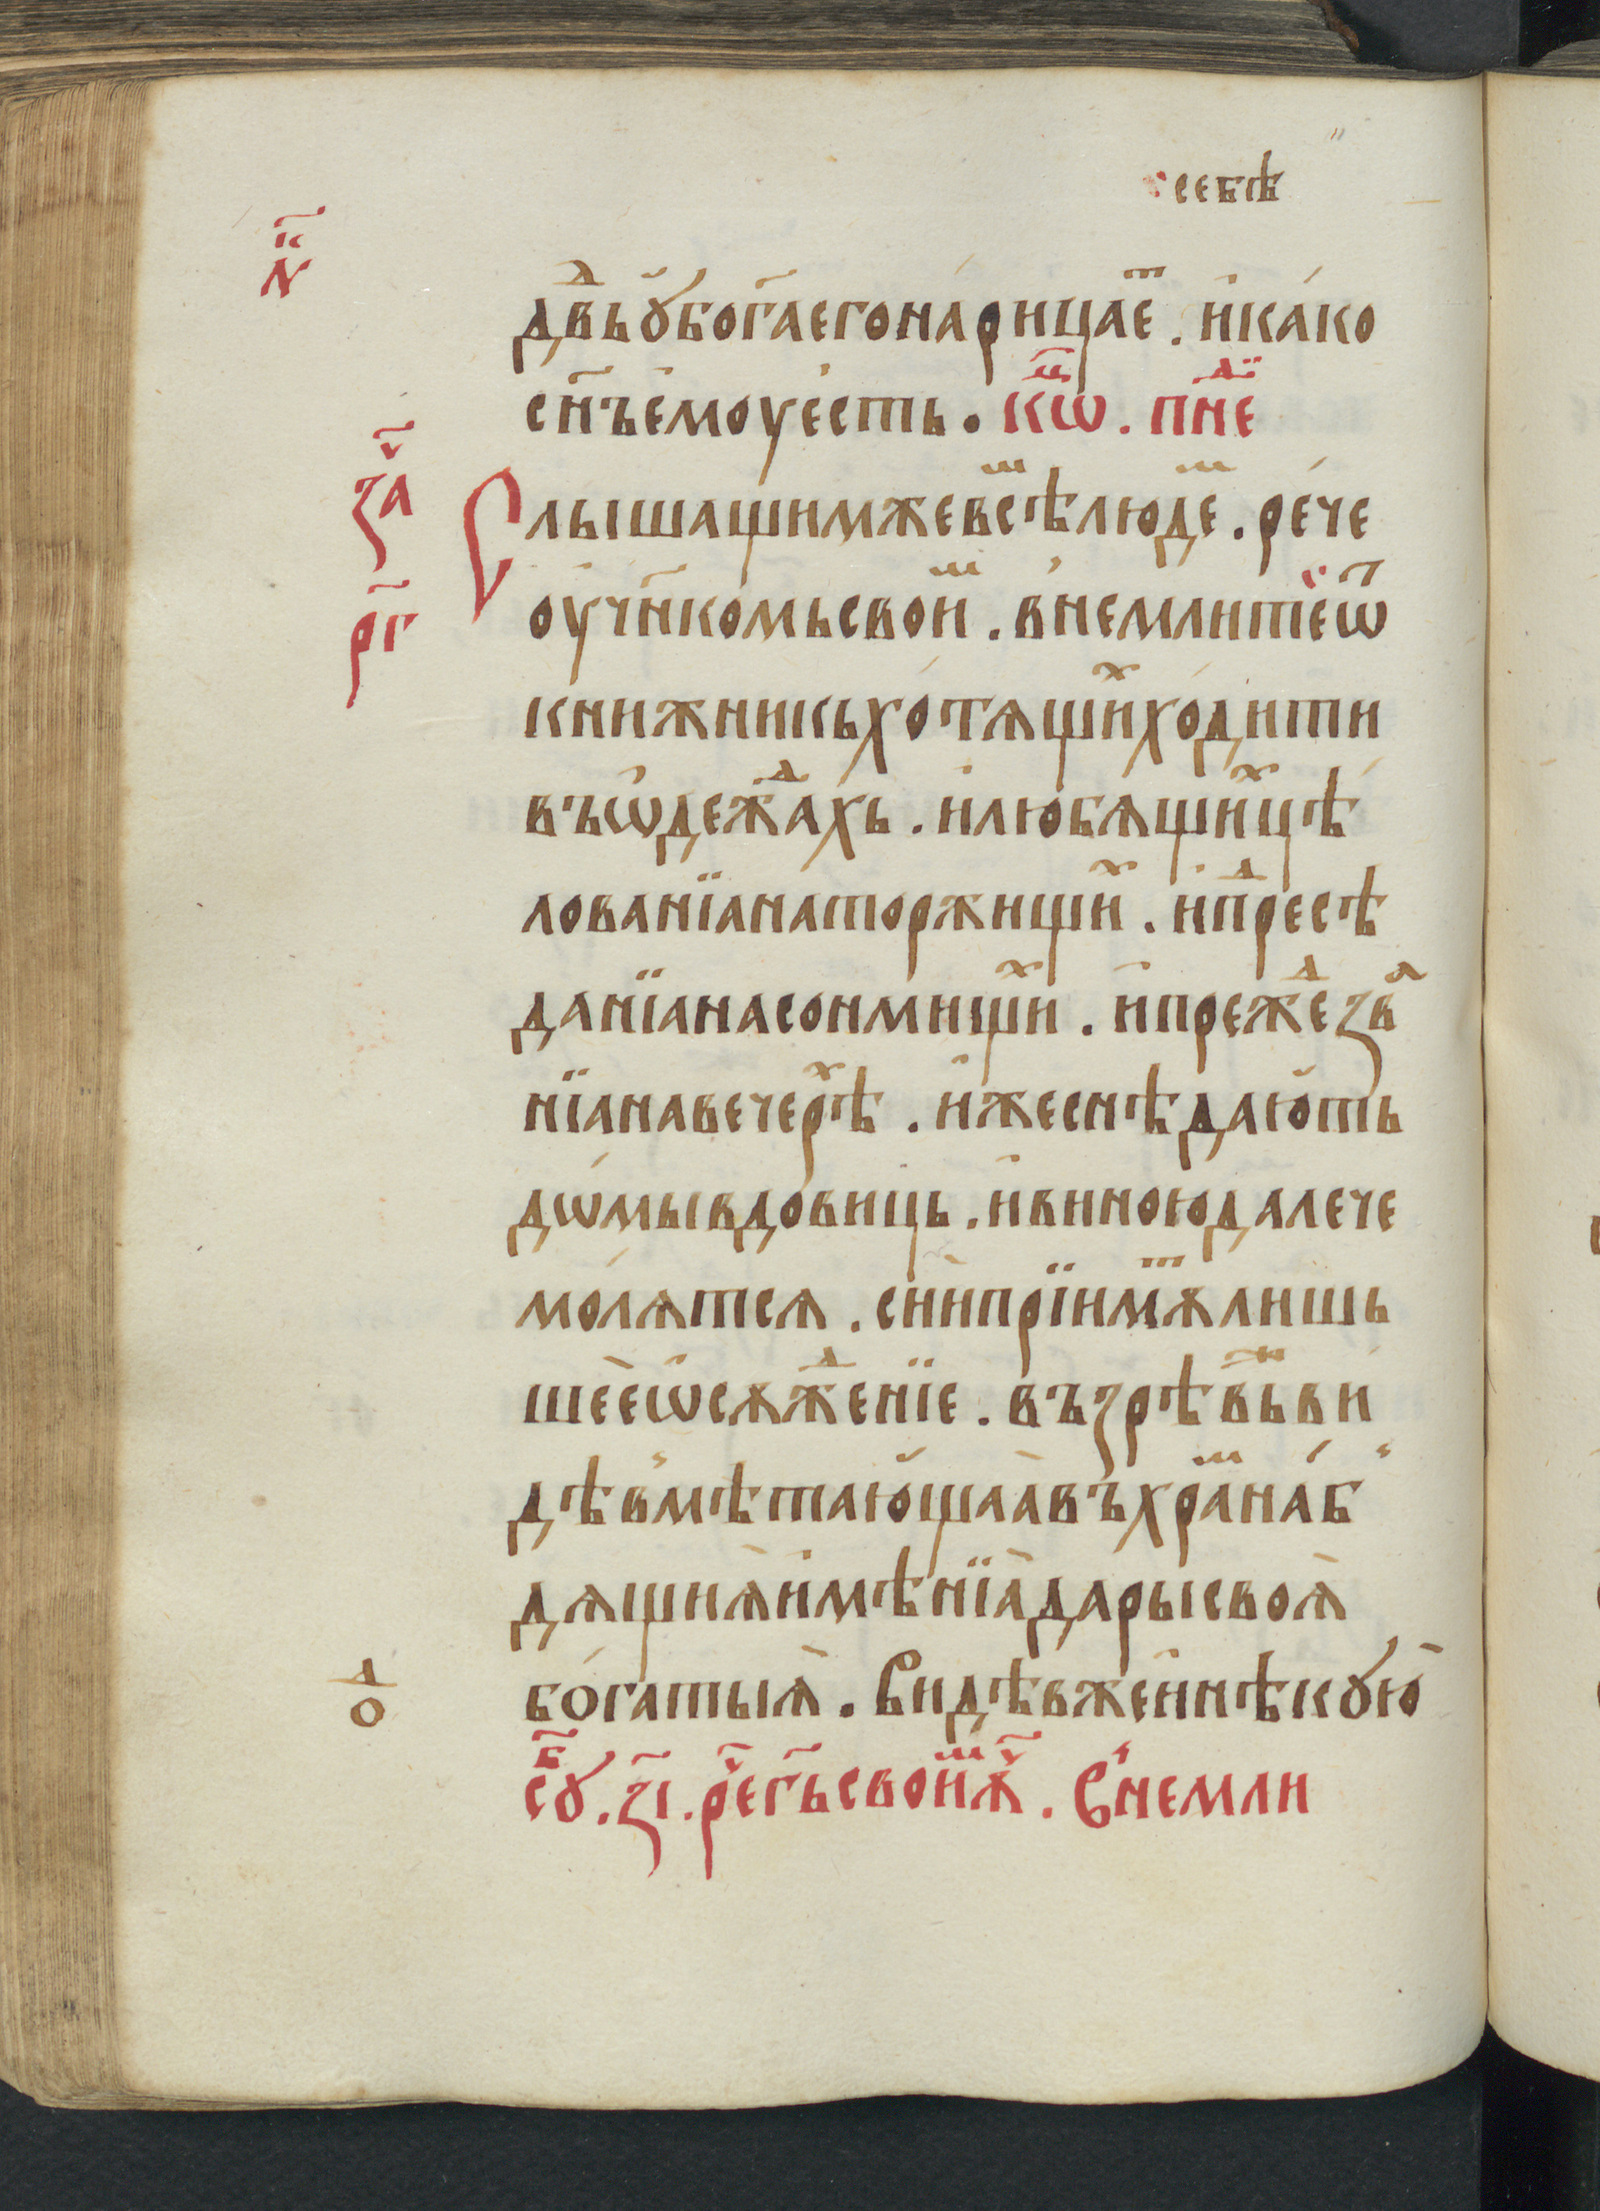 себѣ
н҃к
дв҃дъ ꙋбо г҃а его нарицаеⷮ . и како
сн҃ъ емоу есть . кⷩ҇ѿ . пнⷣе
за҃ч
Слышащимже всѣⷨ людеⷨ . рече
оучн҃комь своиⷨ . внемлите ѿ
р҃г
книжникь хотящиⷯ ходити
въ ѡдежⷣахь . и любящиⷯ цѣ
лованїа на торжищиⷯ . и преⷣсѣ
данїа на сонмищиⷯ . и прежⷣезваⷡ
нїа на вечерѣⷯ . иже снѣдають
дѡмы вдовиць . и виною далече
молятся . сии прїимꙋⷮ лишь
шее ѡсꙋжⷣенїе . възрѣвь ви
дѣ вметающаа въ храⷨ на б
дящия имѣнїа дары своя
богатыя . Видѣвже и нѣкую
оⷣ
сⷠꙋ . з҃і . рⷱе гь своиⷨ ꙋⷱ . Внемли